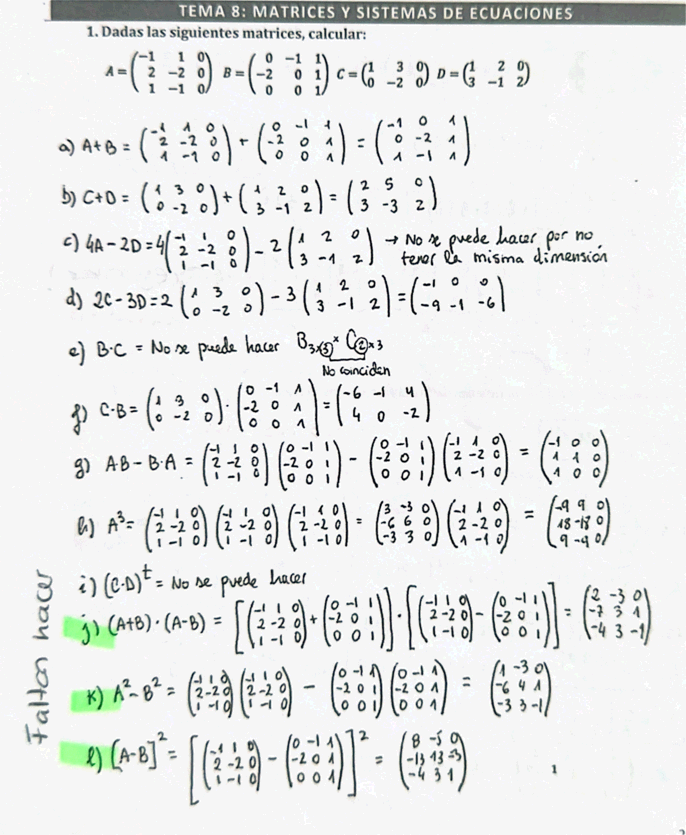 TEMA 8: MATRICES Y SISTEMAS DE ECUACIONES
1. Dadas las siguientes matrices, calcular:
A = (-1 1 0; 2 -2 0; 1 -1 0) B = (0 -1 1; -2 0 1; 0 0 1) C = (1 3 0; 0 -2 0) D = (1 2 0; 3 -1 2)
a) A+B = (-1 1 0; 2 -2 0; 1 -1 0) + (0 -1 1; -2 0 1; 0 0 1) = (-1 0 1; 0 -2 1; 1 -1 1)
b) C+D = (1 3 0; 0 -2 0) + (1 2 0; 3 -1 2) = (2 5 0; 3 -3 2)
c) 4A - 2D = 4(-1 1 0; 2 -2 0; 1 -1 0) - 2(1 2 0; 3 -1 2) → No se puede hacer por no
tener la misma dimensión
d) 2C - 3D = 2(1 3 0; 0 -2 0) - 3(1 2 0; 3 -1 2) = (-1 0 0; -9 -1 -6)
e) B·C = No se puede hacer B3x3 x C2x3
No coinciden
f) C·B = (1 3 0; 0 -2 0) · (0 -1 1; -2 0 1; 0 0 1) = (-6 -1 4; 4 0 -2)
g) AB - B·A = (-1 1 0; 2 -2 0; 1 -1 0) (0 -1 1; -2 0 1; 0 0 1) - (0 -1 1; -2 0 1; 0 0 1) (-1 1 0; 2 -2 0; 1 -1 0) = (-1 0 0; 1 1 0; 1 0 0)
h) A³ = (-1 1 0; 2 -2 0; 1 -1 0) (-1 1 0; 2 -2 0; 1 -1 0) (-1 1 0; 2 -2 0; 1 -1 0) = (3 -3 0; -6 6 0; -3 3 0) (-1 1 0; 2 -2 0; 1 -1 0) = (-9 9 0; 18 -18 0; 9 -9 0)
i) (C·D)ᵗ = No se puede hacer
j) (A+B)·(A-B) = [(-1 1 0; 2 -2 0; 1 -1 0) + (0 -1 1; -2 0 1; 0 0 1)] · [(-1 1 0; 2 -2 0; 1 -1 0) - (0 -1 1; -2 0 1; 0 0 1)] = (2 -3 0; -7 3 1; -4 3 -1)
k) A² - B² = (-1 1 0; 2 -2 0; 1 -1 0) (-1 1 0; 2 -2 0; 1 -1 0) - (0 -1 1; -2 0 1; 0 0 1) (0 -1 1; -2 0 1; 0 0 1) = (1 -3 0; -6 4 1; -3 3 -1)
l) [A-B]² = [(-1 1 0; 2 -2 0; 1 -1 0) - (0 -1 1; -2 0 1; 0 0 1)]² = (8 -5 0; -13 13 -3; -4 3 1)
Faltan hacer
1